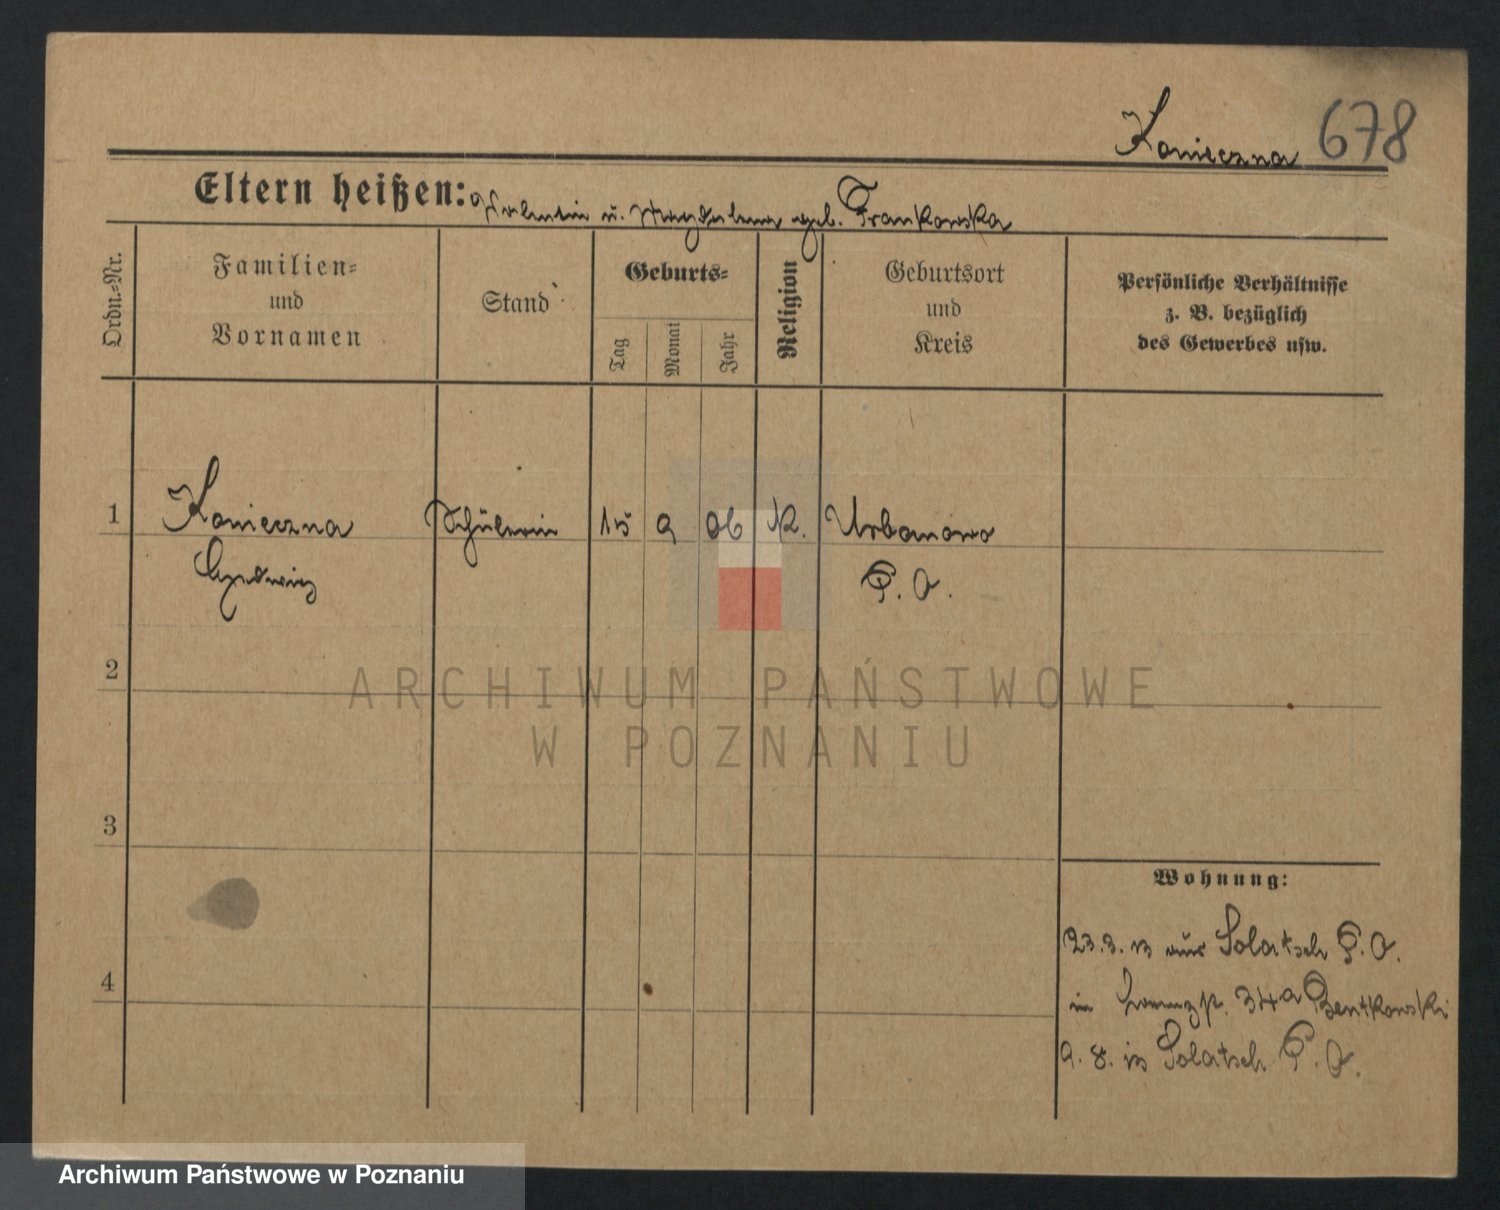 Konieczna 678
Eltern heißen: Valentin u. Magdalena geb. Frankowska
Ordn.-Nr.
Familien-
und
Vornamen
Stand
Geburts-
Tag
Monat
Jahr
Religion
Geburtsort
und
Kreis
Persönliche Verhältnisse
z. B. bezüglich
des Gewerbes usw.
1 Konieczna Schülerin 15 9 06 K. Urbanowo
Hedwig P. O.
2
ARCHIWUM PAŃSTWOWE
W POZNANIU
3
4
Wohnung:
23.3.13 aus Solatsch P. O.
in 34a Bentkowski
9. 8. 13 Solatsch P. O.
Archiwum Państwowe w Poznaniu